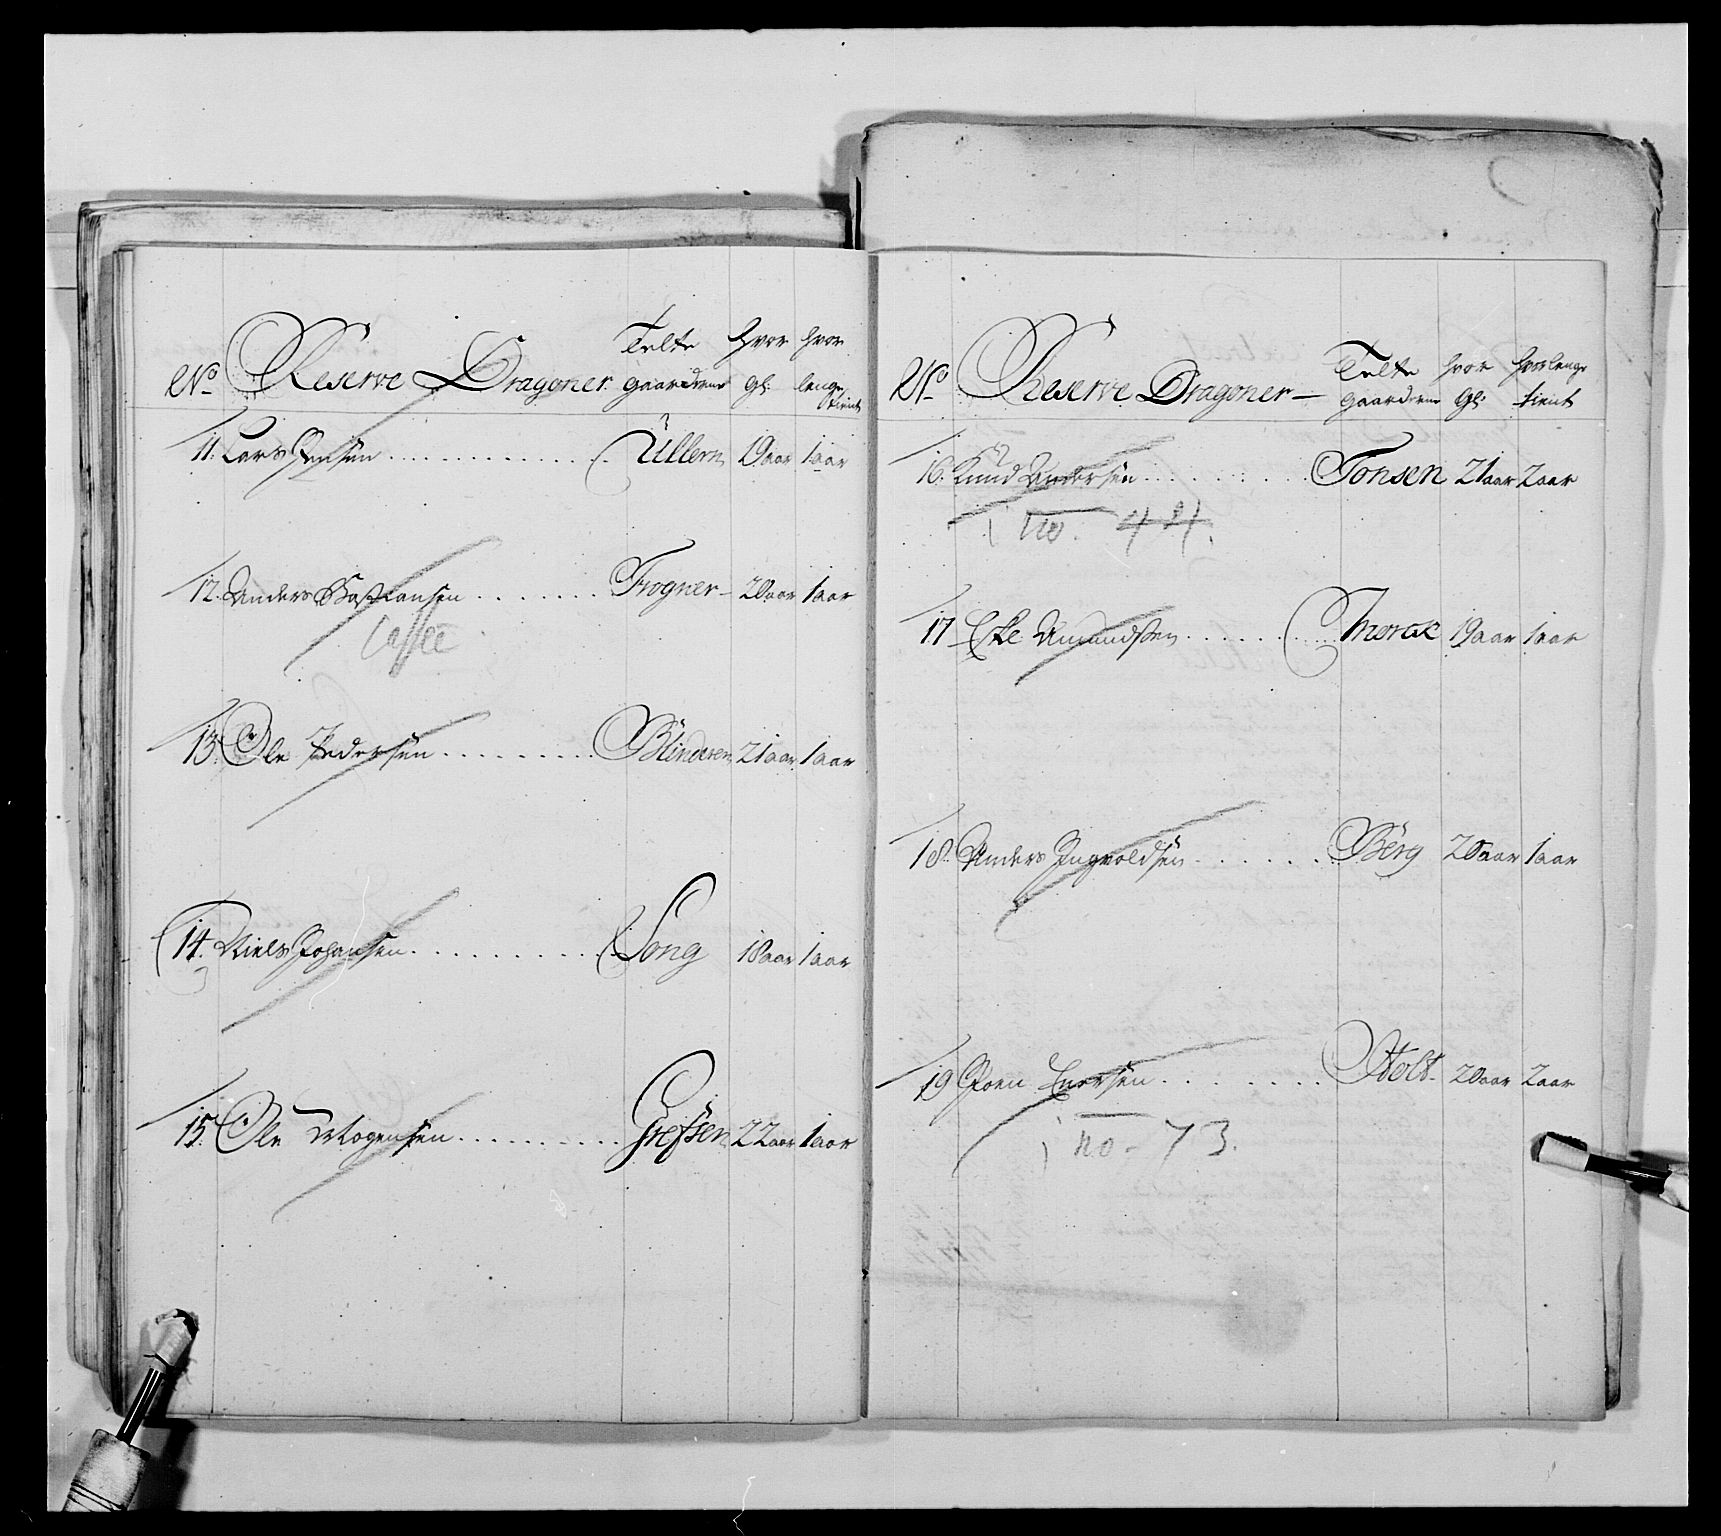 No Reserve Dragoner Telte gaardene Hvor gl: hvor lenge tient
11. Lars Jensen Üllern 19 aar 1 aar
12. Anders Bastiansen Frogner 20 aar 1 aar
Casse
13. Ole Pedersen Blinderen 21 aar 1 aar
14. Niels Johansen Song 18 aar 1 aar
15. Ole Mogensen Grefsen 22 aar 1 aar
No Reserve Dragoner Telte gaardene hvor gl: hvor lenge tient
16. Knud Andersen Tonsen 21 aar 2 aar
i no. 44.
17 Amundsen 19 aar 1 aar
18. Anders Ingvoldsen Berg 20 aar 1 aar
19 Joen Enersen Holt 20 aar 2 aar
i no - 73.